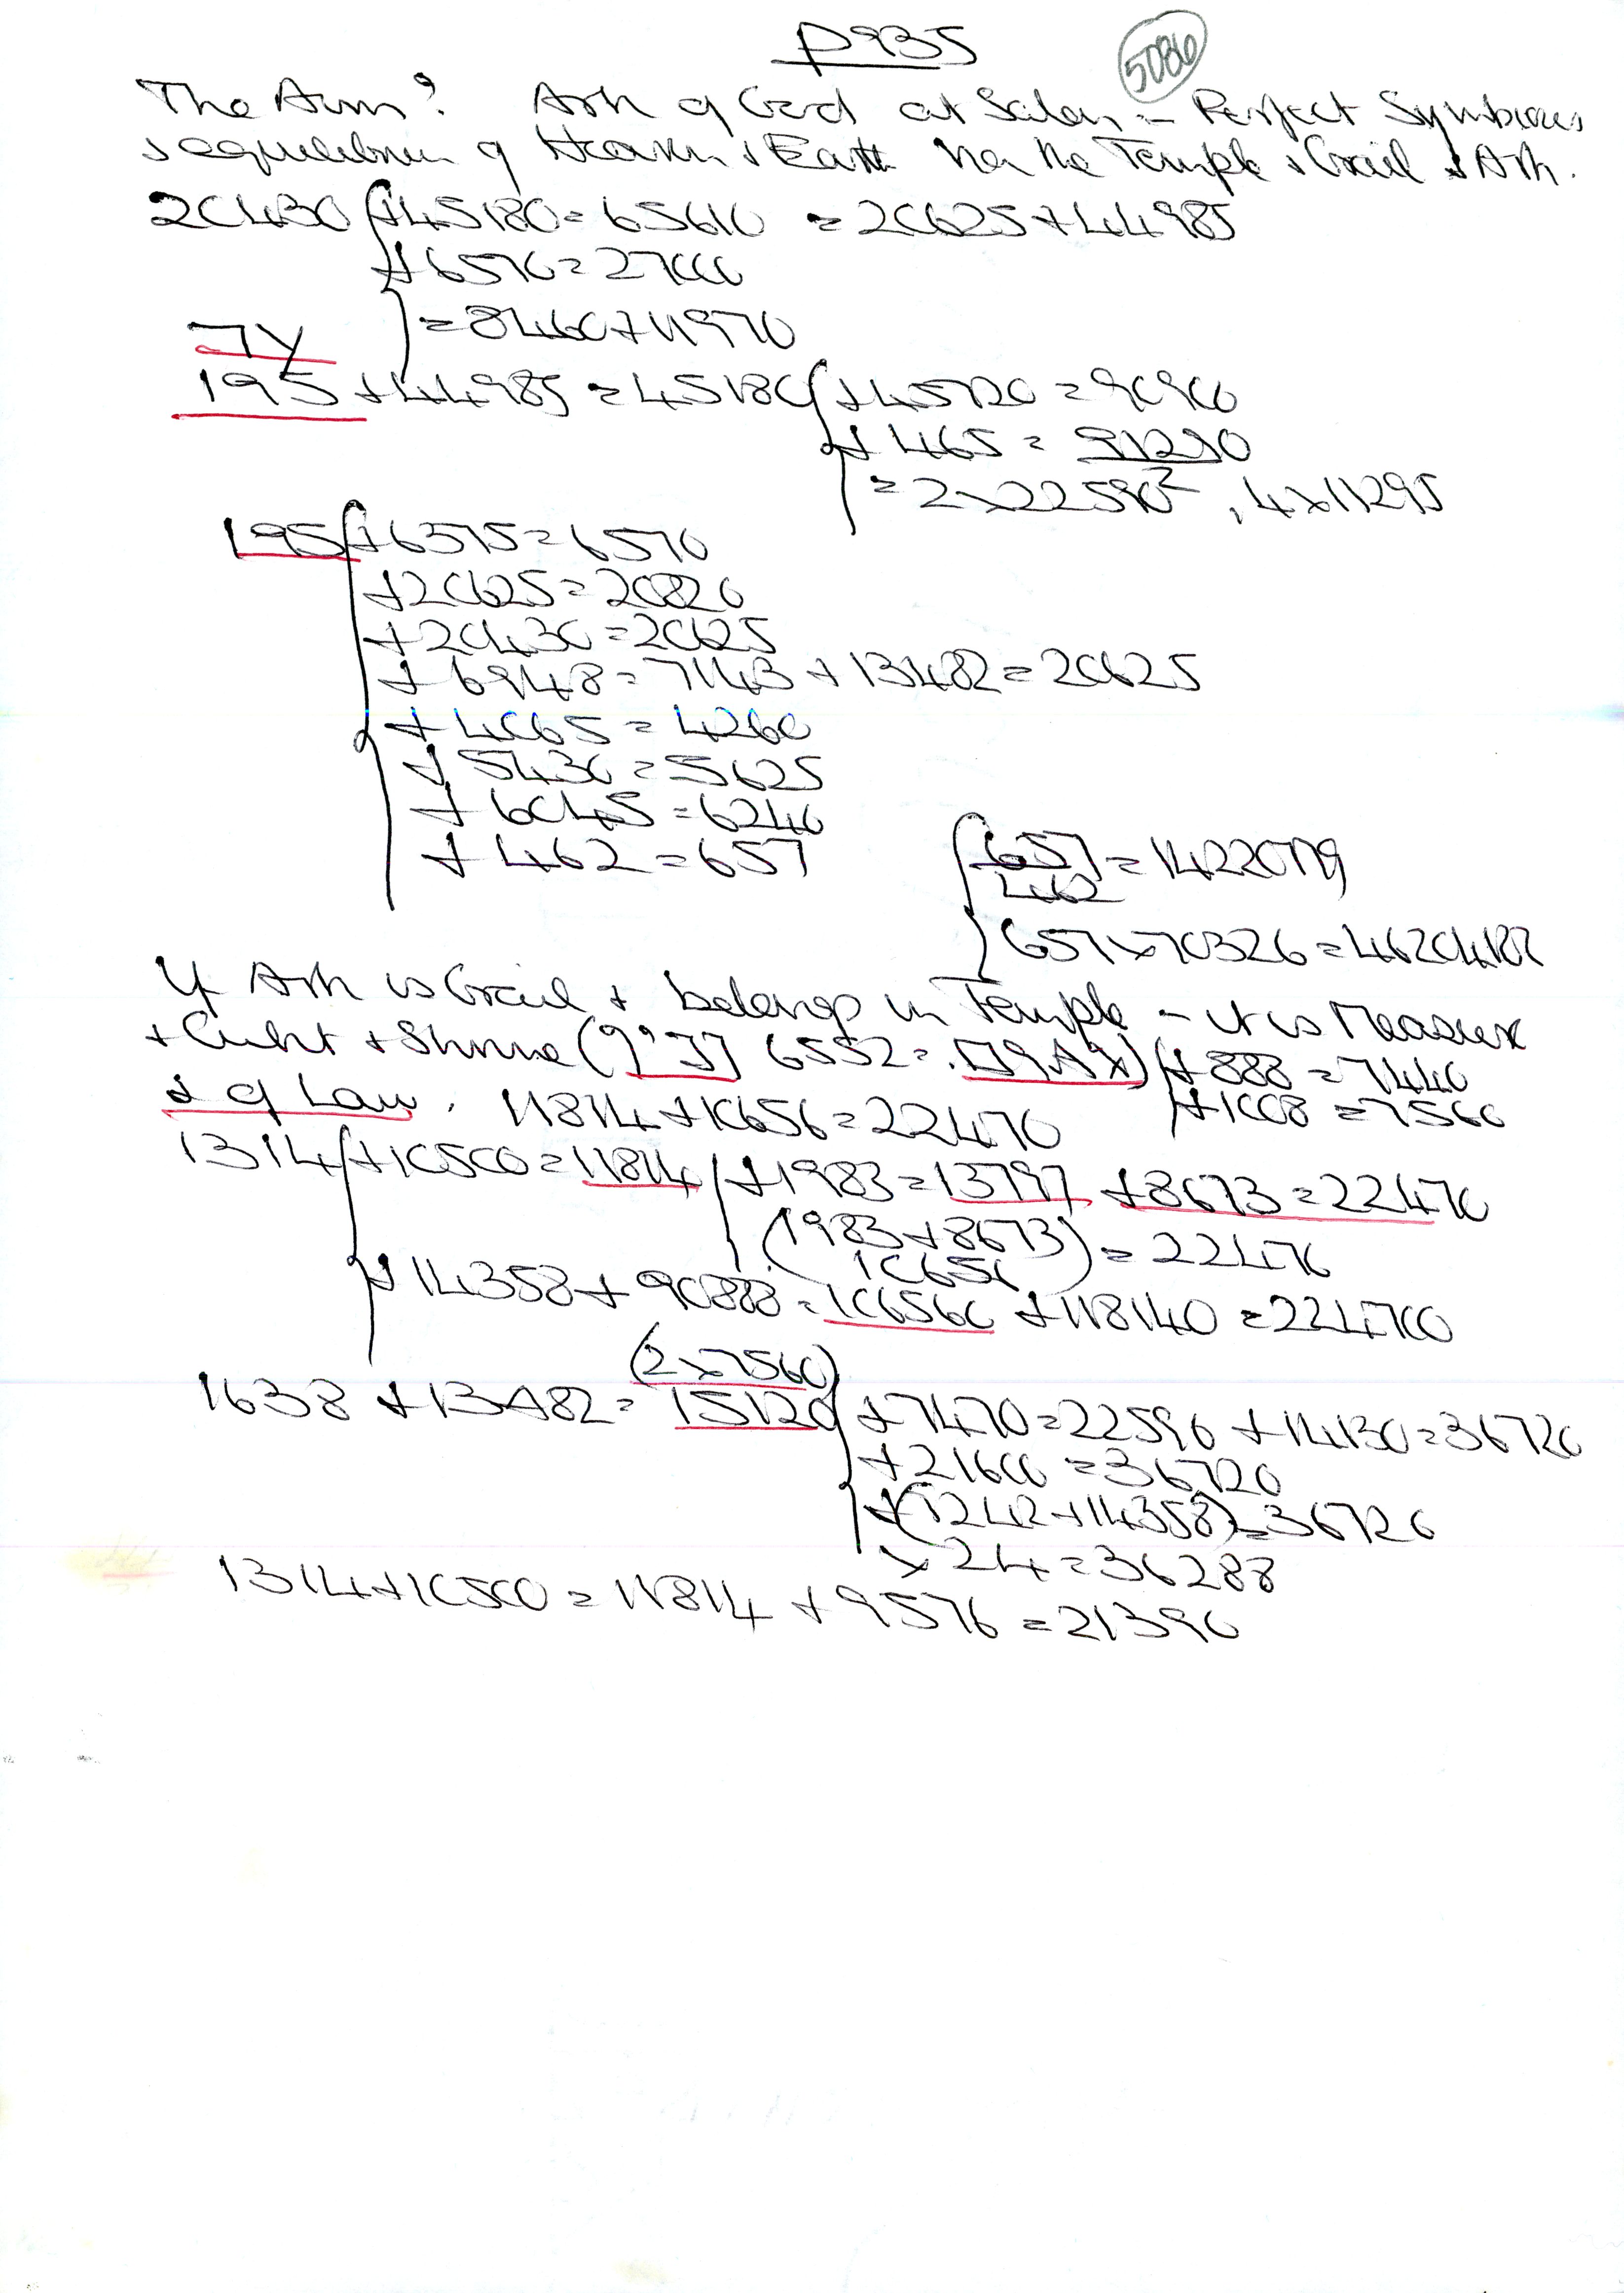 P935
5086
The Aim? Ark of God at Salem – Perfect Symbiosis
& equilibrium of Heaven & Earth via the Temple & Grail & Ark.
20430 +45180=65610 =20625+44985
+6570=27000
=8460+11970
195+44985=45180 +45720=90900
+465=91290
=2×22590², 4×11295
195+6375=6570
+20625=20820
+20430=20625
+6948=7143+13482=20625
+4065=4260
+5430=5625
+6045=6240
+462=657
657/462=1422079
657×70326=46204182
If Ark is Grail & belongs in Temple – it is Measure
+ Cubit + Shrine ( 6552= ) +888=7440
& of Law. 11814+10656=22470 +1008=7560
1314+10500=11814 +1983=13797 +8673=22470
(1983+8673) =22470
10656
+14358+90888=106560+118140=224700
(2×7560)
1638+13482=15120 +7470=22590+14130=36720
+21600=36720
+(7242+14358)=36720
×24=36288
1314+10500=11814+9576=21390